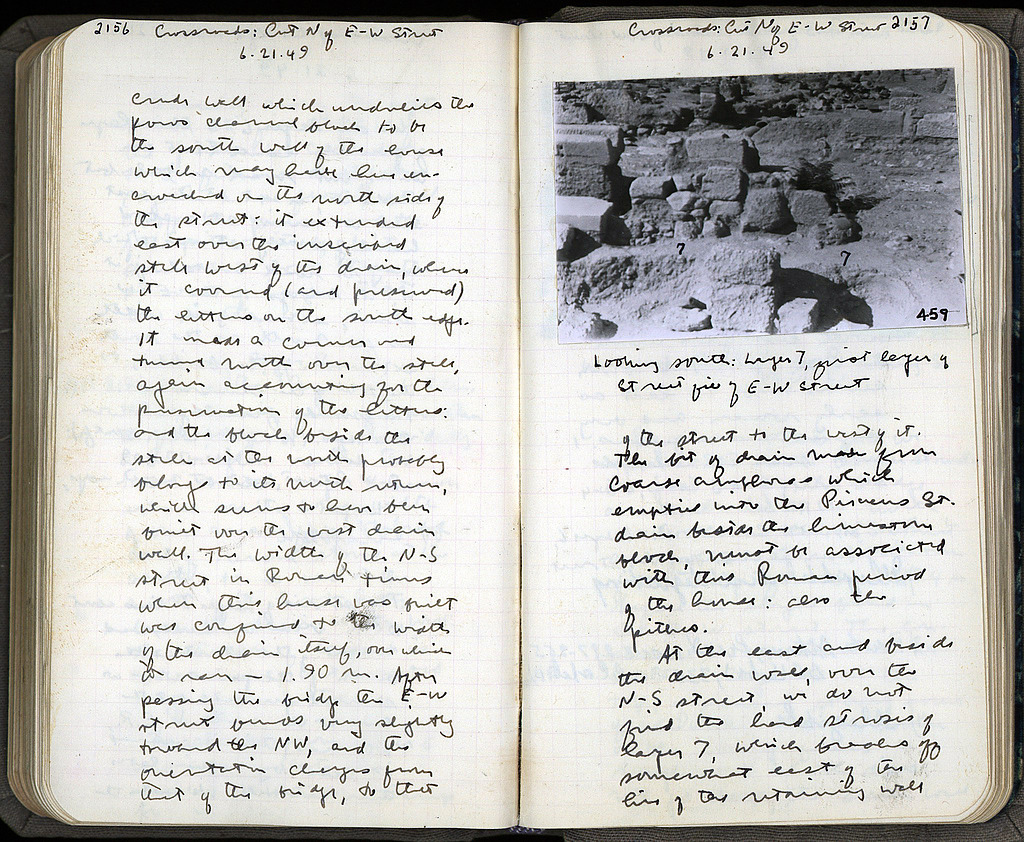 2156 Crossroads: Cut N of E-W Street
6.21.49
crude wall which underlies the
poros channel block to be
the south wall of the house
which may have been en-
croached on the north side of
the street: it extended
east over the inscribed
stele west of the drain, where
it covered (and preserved)
the letters on the south edge.
It made a corner and
turned north over the stele,
again accounting for the
preservation of the letters:
and the block beside the
stele at the north probably
belongs to its north return,
which seems to have been
built over the west drain
wall. The width of the N-S
street in Roman times
when this house was built
was confined to the width
of the drain itself, over which
it ran – 1.90 m. After
passing the bridge the E-W
street bends very slightly
toward the NW, and the
orientation changes from
that of the bridge, to that
Crossroads: Cut N of E-W Street 2157
6.21.49
7
7
459
Looking south: Layer 7, first layer of
Street fill of E-W Street
of the street to the west of it.
The bit of drain made from
coarse amphoras which
empties into the Piraeus St.
drain beside the limestone
block, must be associated
with this Roman period
of the house: also the
pithos.
At the east and beside
the drain wall, over the
N-S street we do not
find the hard strosis of
layer 7, which breaks off
somewhat east of the
line of the retaining wall